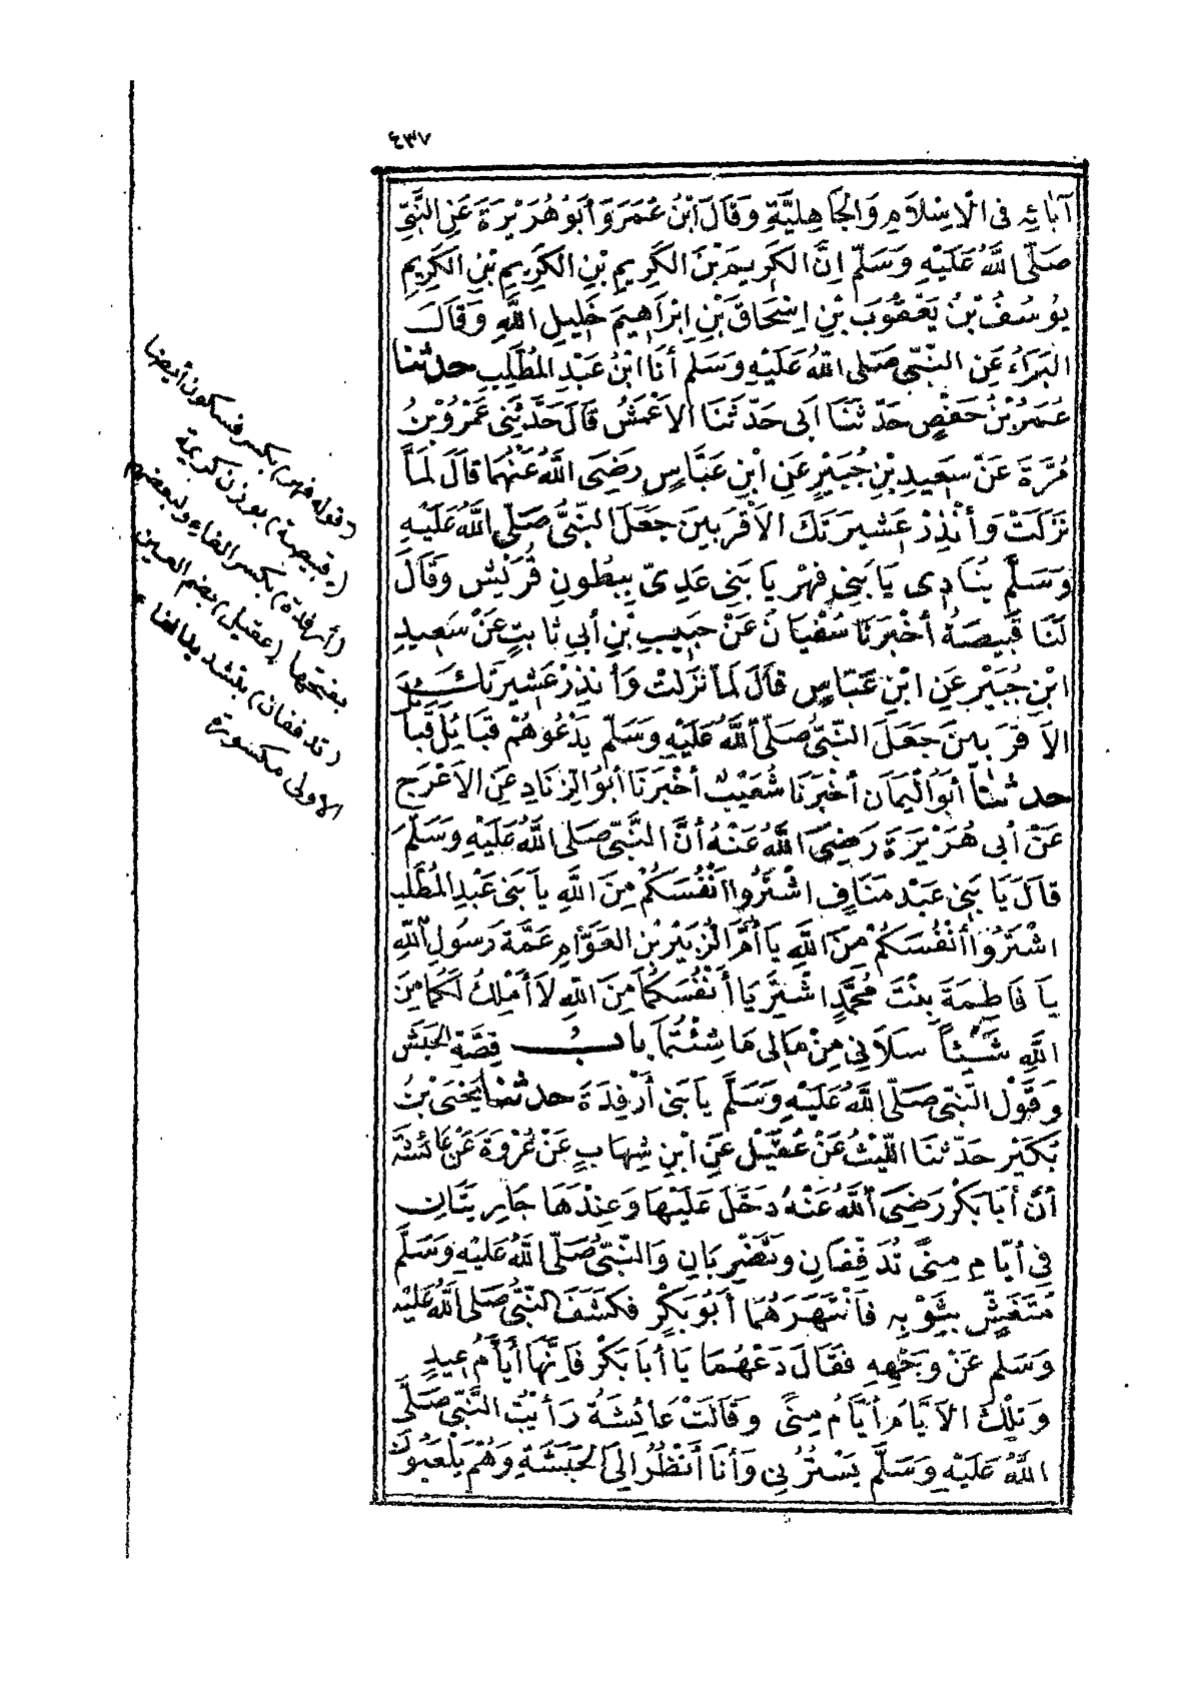 ٤٣٧
آبَائِهِ فِى الْاِسْلَامِ وَالْجَاهِلِيَّةِ وَقَالَ ابْنُ عُمَرَ وَأَبُو هُرَيْرَةَ عَنِ النَّبِىِّ
صَلَّى اللَّهُ عَلَيْهِ وَسَلَّمَ اِنَّ الْكَرِيمَ بْنَ الْكَرِيمِ بْنِ الْكَرِيمِ بْنِ الْكَرِيمِ
يُوسُفُ بْنُ يَعْقُوبَ بْنِ اِسْحَاقَ بْنِ اِبْرَاهِيمَ خَلِيلِ اللَّهِ وَقَالَ
الْبَرَاءُ عَنِ النَّبِىِّ صَلَى اللَّهُ عَلَيْهِ وَسَلَّمَ أَنَا ابْنُ عَبْدِ الْمُطَّلِبِ حدثنا
عُمَرُ بْنُ حَفْصٍ حَدَّثَنَا أَبِى حَدَّثَنَا الْاَعْمَشُ قَالَ حَدَّثَنِى عَمْرُو بْنُ
مُرَّةَ عَنْ سَعِيدِ بْنِ جُبَيْرٍ عَنِ ابْنِ عَبَّاسٍ رَضِىَ اللَّهُ عَنْهُمَا قَالَ لَمَّا
نَزَلَتْ وَأَنْذِرْ عَشِيرَتَكَ الْاَقْرَبِينَ جَعَلَ النَّبِىُّ صَلَّى اللَّهُ عَلَيْهِ
وَسَلَّمَ يُنَادِى يَا بَنِى فِهْرٍ يَا بَنِى عَدِىٍّ بِبُطُونِ قُرَيْشٍ وَقَالَ
لَنَا قَبِيصَةُ أَخْبَرَنَا سُفْيَانُ عَنْ حَبِيبِ بْنِ أَبِى ثَابِتٍ عَنْ سَعِيدِ
ابْنِ جُبَيْرٍ عَنِ ابْنِ عَبَّاسٍ قَالَ لَمَّا نَزَلَتْ وَأَنْذِرْ عَشِيرَتَكَ
الْاَقْرَبِينَ جَعَلَ النَّبِىُّ صَلَّى اللَّهُ عَلَيْهِ وَسَلَّمَ يَدْعُوهُمْ قَبَائِلَ قَبَائِلَ
حدثنا أَبُو الْيَمَانِ أَخْبَرَنَا شُعَيْبٌ أَخْبَرَنَا أَبُو الزِّنَادِ عَنِ الْاَعْرَجِ
عَنْ أَبِى هُرَيْرَةَ رَضِىَ اللَّهُ عَنْهُ أَنَّ النَّبِىَّ صَلَى اللَّهُ عَلَيْهِ وَسَلَّمَ
قَالَ يَا بَنِى عَبْدِ مَنَافٍ اشْتَرُوا أَنْفُسَكُمْ مِنَ اللَّهِ يَا بَنِى عَبْدِ الْمُطَّلِبِ
اشْتَرُوا أَنْفُسَكُمْ مِنَ اللَّهِ يَا أُمَّ الزُّبَيْرِ بْنِ الْعَوَّامِ عَمَّةَ رَسُولِ اللَّهِ
يَا فَاطِمَةَ بِنْتَ مُحَمَّدٍ اشْتَرِيَا أَنْفُسَكُمَا مِنَ اللَّهِ لَا أَمْلِكُ لَكُمَا مِنَ
اللَّهِ شَيْئًا سَلَانِى مِنْ مَالِى مَا شِئْتُمَا بابُ قِصَّةِ الْحَبَشِ
وَقَوْلِ النَّبِىِّ صَلَّى اللَّهُ عَلَيْهِ وَسَلَّمَ يَا بَنِى أَرْفِدَةَ حدثنا يَحْيَى بْنُ
بُكَيْرٍ حَدَّثَنَا اللَّيْثُ عَنْ عُقَيْلٍ عَنِ ابْنِ شِهَابٍ عَنْ عُرْوَةَ عَنْ عَائِشَةَ
أَنَّ أَبَا بَكْرٍ رَضِىَ اللَّهُ عَنْهُ دَخَلَ عَلَيْهَا وَعِنْدَهَا جَارِيَتَانِ
فِى أَيَّامِ مِنًى تُدَفِّفَانِ وَتَضْرِبَانِ وَالنَّبِىُّ صَلَّى اللَّهُ عَلَيْهِ وَسَلَّمَ
مُتَغَشٍّ بِثَوْبِهِ فَانْتَهَرَهُمَا أَبُو بَكْرٍ فَكَشَفَ النَّبِىُّ صَلَى اللَّهُ عَلَيْهِ
وَسَلَّمَ عَنْ وَجْهِهِ فَقَالَ دَعْهُمَا يَا أَبَا بَكْرٍ فَاِنَّهَا أَيَّامُ عِيدٍ
وَتِلْكَ الْاَيَّامُ أَيَّامُ مِنًى وَقَالَتْ عَائِشَةُ رَأَيْتُ النَّبِىَّ صَلَّى
اللَّهُ عَلَيْهِ وَسَلَّمَ يَسْتُرُنِى وَأَنَا أَنْظُرُ اِلَى الْحَبَشَةِ وَهُمْ يَلْعَبُونَ
(قوله فهر) بكسر فسكون أيضا
(قبيصة) بوزن كريمة
(أرفدة) بكسر الفاء ولبعضهم
بفتحها (عقيل) بضم العين
(تدففان) بتشديد الفاء
الاولى مكسورة